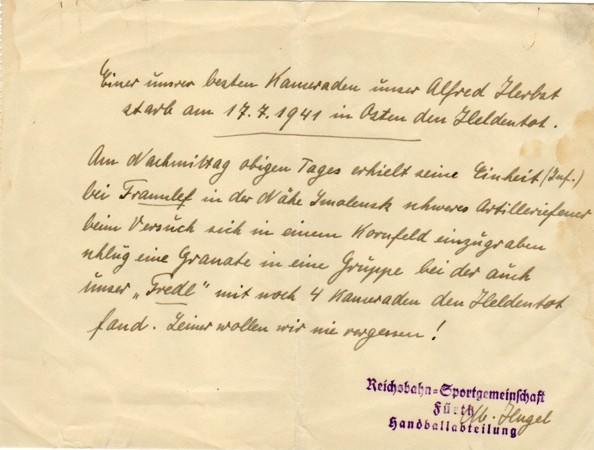 Einer unsrer besten Kameraden unser Alfred Herbst
starb am 17.7.1941 in Osten den Heldentot.
Am Nachmittag obigen Tages erhielt seine Einheit (Inf.)
bei in der Nähe Smolensk schweres Artilleriefeuer
beim Versuch sich in einem Kornfeld einzugraben
schlug eine Granate in eine Gruppe bei der auch
unser „Fredl“ mit noch 4 Kameraden den Heldentot
fand. Seiner wollen wir nie vergessen!
Reichsbahn=Sportgemeinschaft
Fürth
Handballabteilung
Hugel